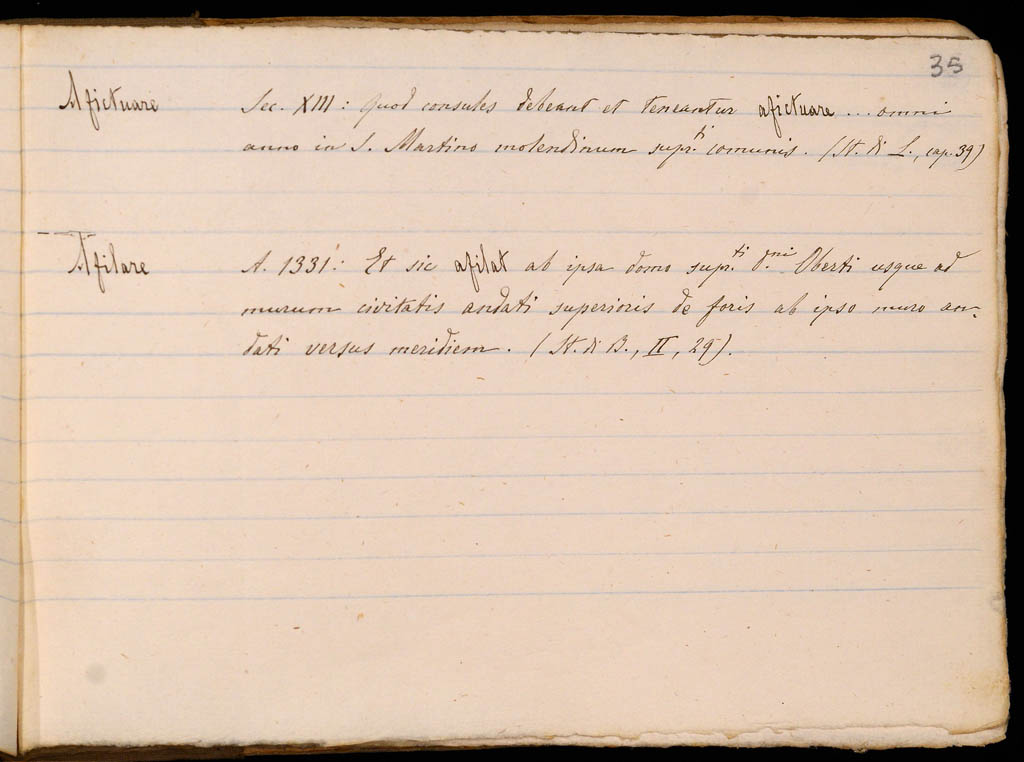 35
Afictuare Sec. XIII: Quod consules debeant et teneantur afictuare ... omni
anno in S. Martino molendinum supr.ti comunis. (St. di L., cap. 39)
Afilare A. 1331: Et sic afilat ab ipsa domo supr.ti d.ni Oberti usque ad
murum civitatis andati superioris de foris ab ipso muro an-
dati versus meridiem. (St. di B., II, 29).